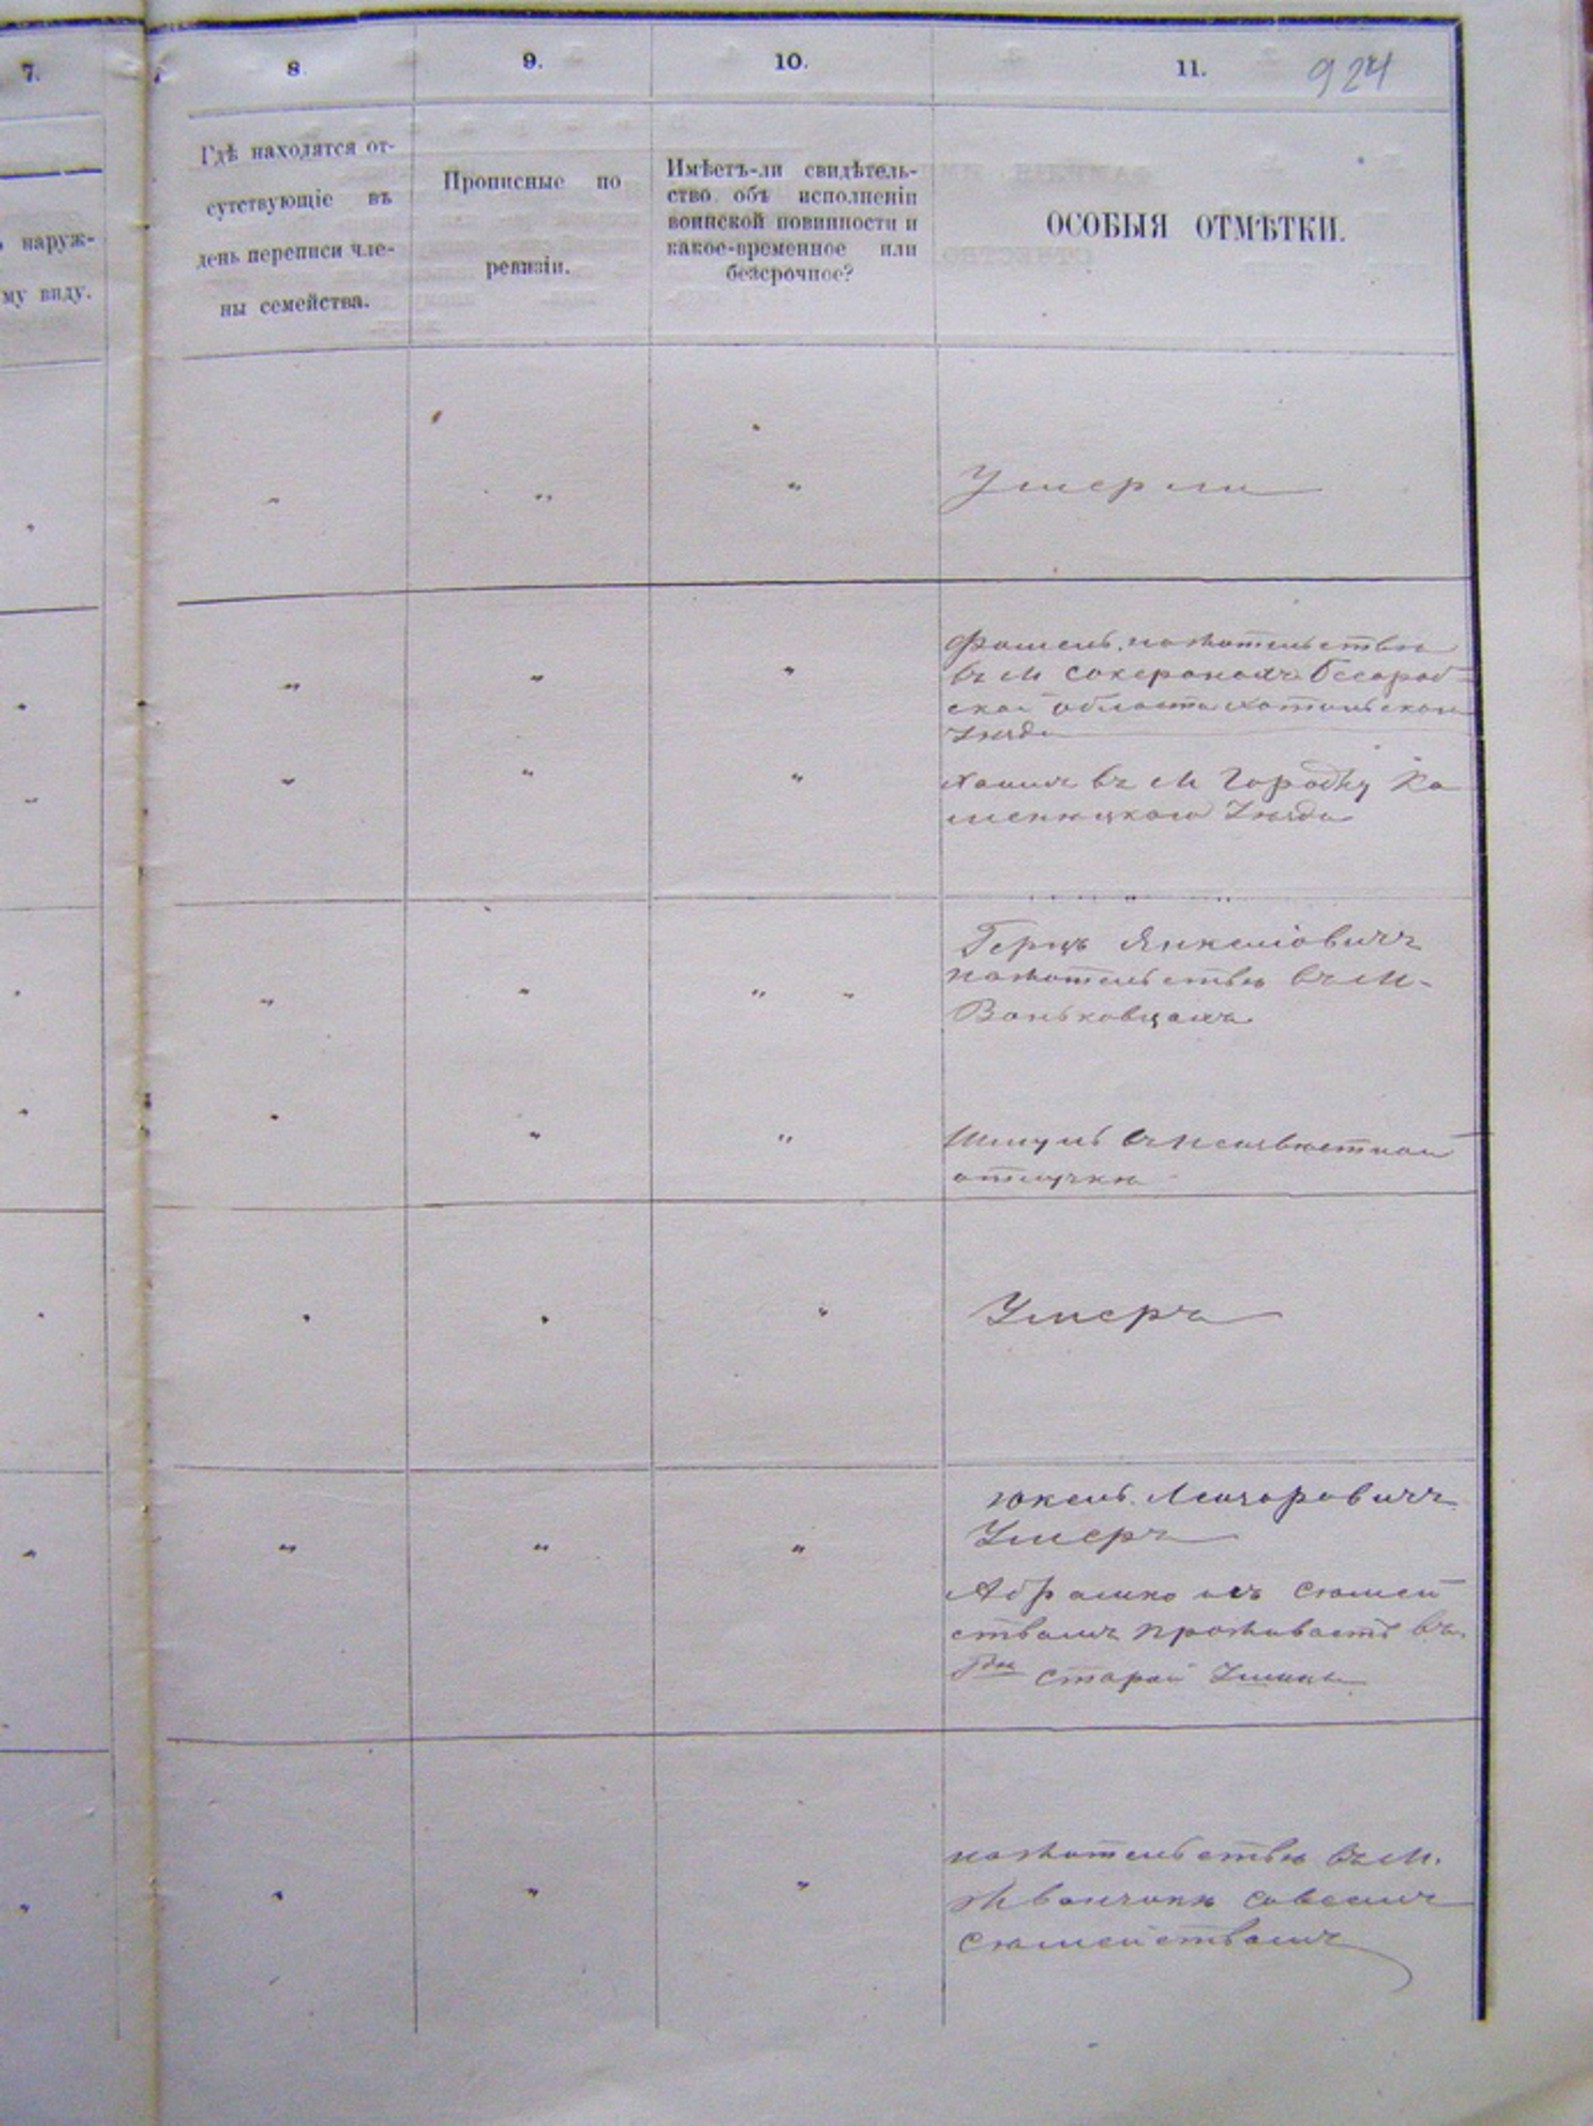 7.
8.
9.
10.
11.
924
ь наруж-
му виду.
Гдѣ находятся от-
сутствующіе въ
день переписи чле-
ны семейства.
Прописные по
ревизіи.
Имѣетъ-ли свидѣтель-
ство объ исполненіи
воинской повинности и
какое-временное или
безсрочное?
ОСОБЫЯ ОТМѢТКИ.
Умерли
Фишель. на жительствѣ
въ М Сокеранахъ Бесараб-
ской области Хотинскаго
Уѣзда
Хаимъ въ М Городку Ка
менецкаго Уѣзда
Герцъ Янкеліовичъ
на жительствѣ въ М-
Воньковцахъ
Шмуль въ неизвѣстной
отлучкѣ
Умеръ
Юкель. Лейзоровичъ
Умеръ
Абрамко изъ сѣмей
ствомъ проживаетъ въ
Старой Ушицѣ
на жительствѣ въ М.
Жванчикѣ совсемъ
сѣмействомъ